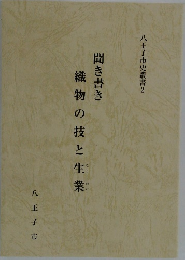 八王子市史叢書2
聞き書き
織物の技と生業
八王子市